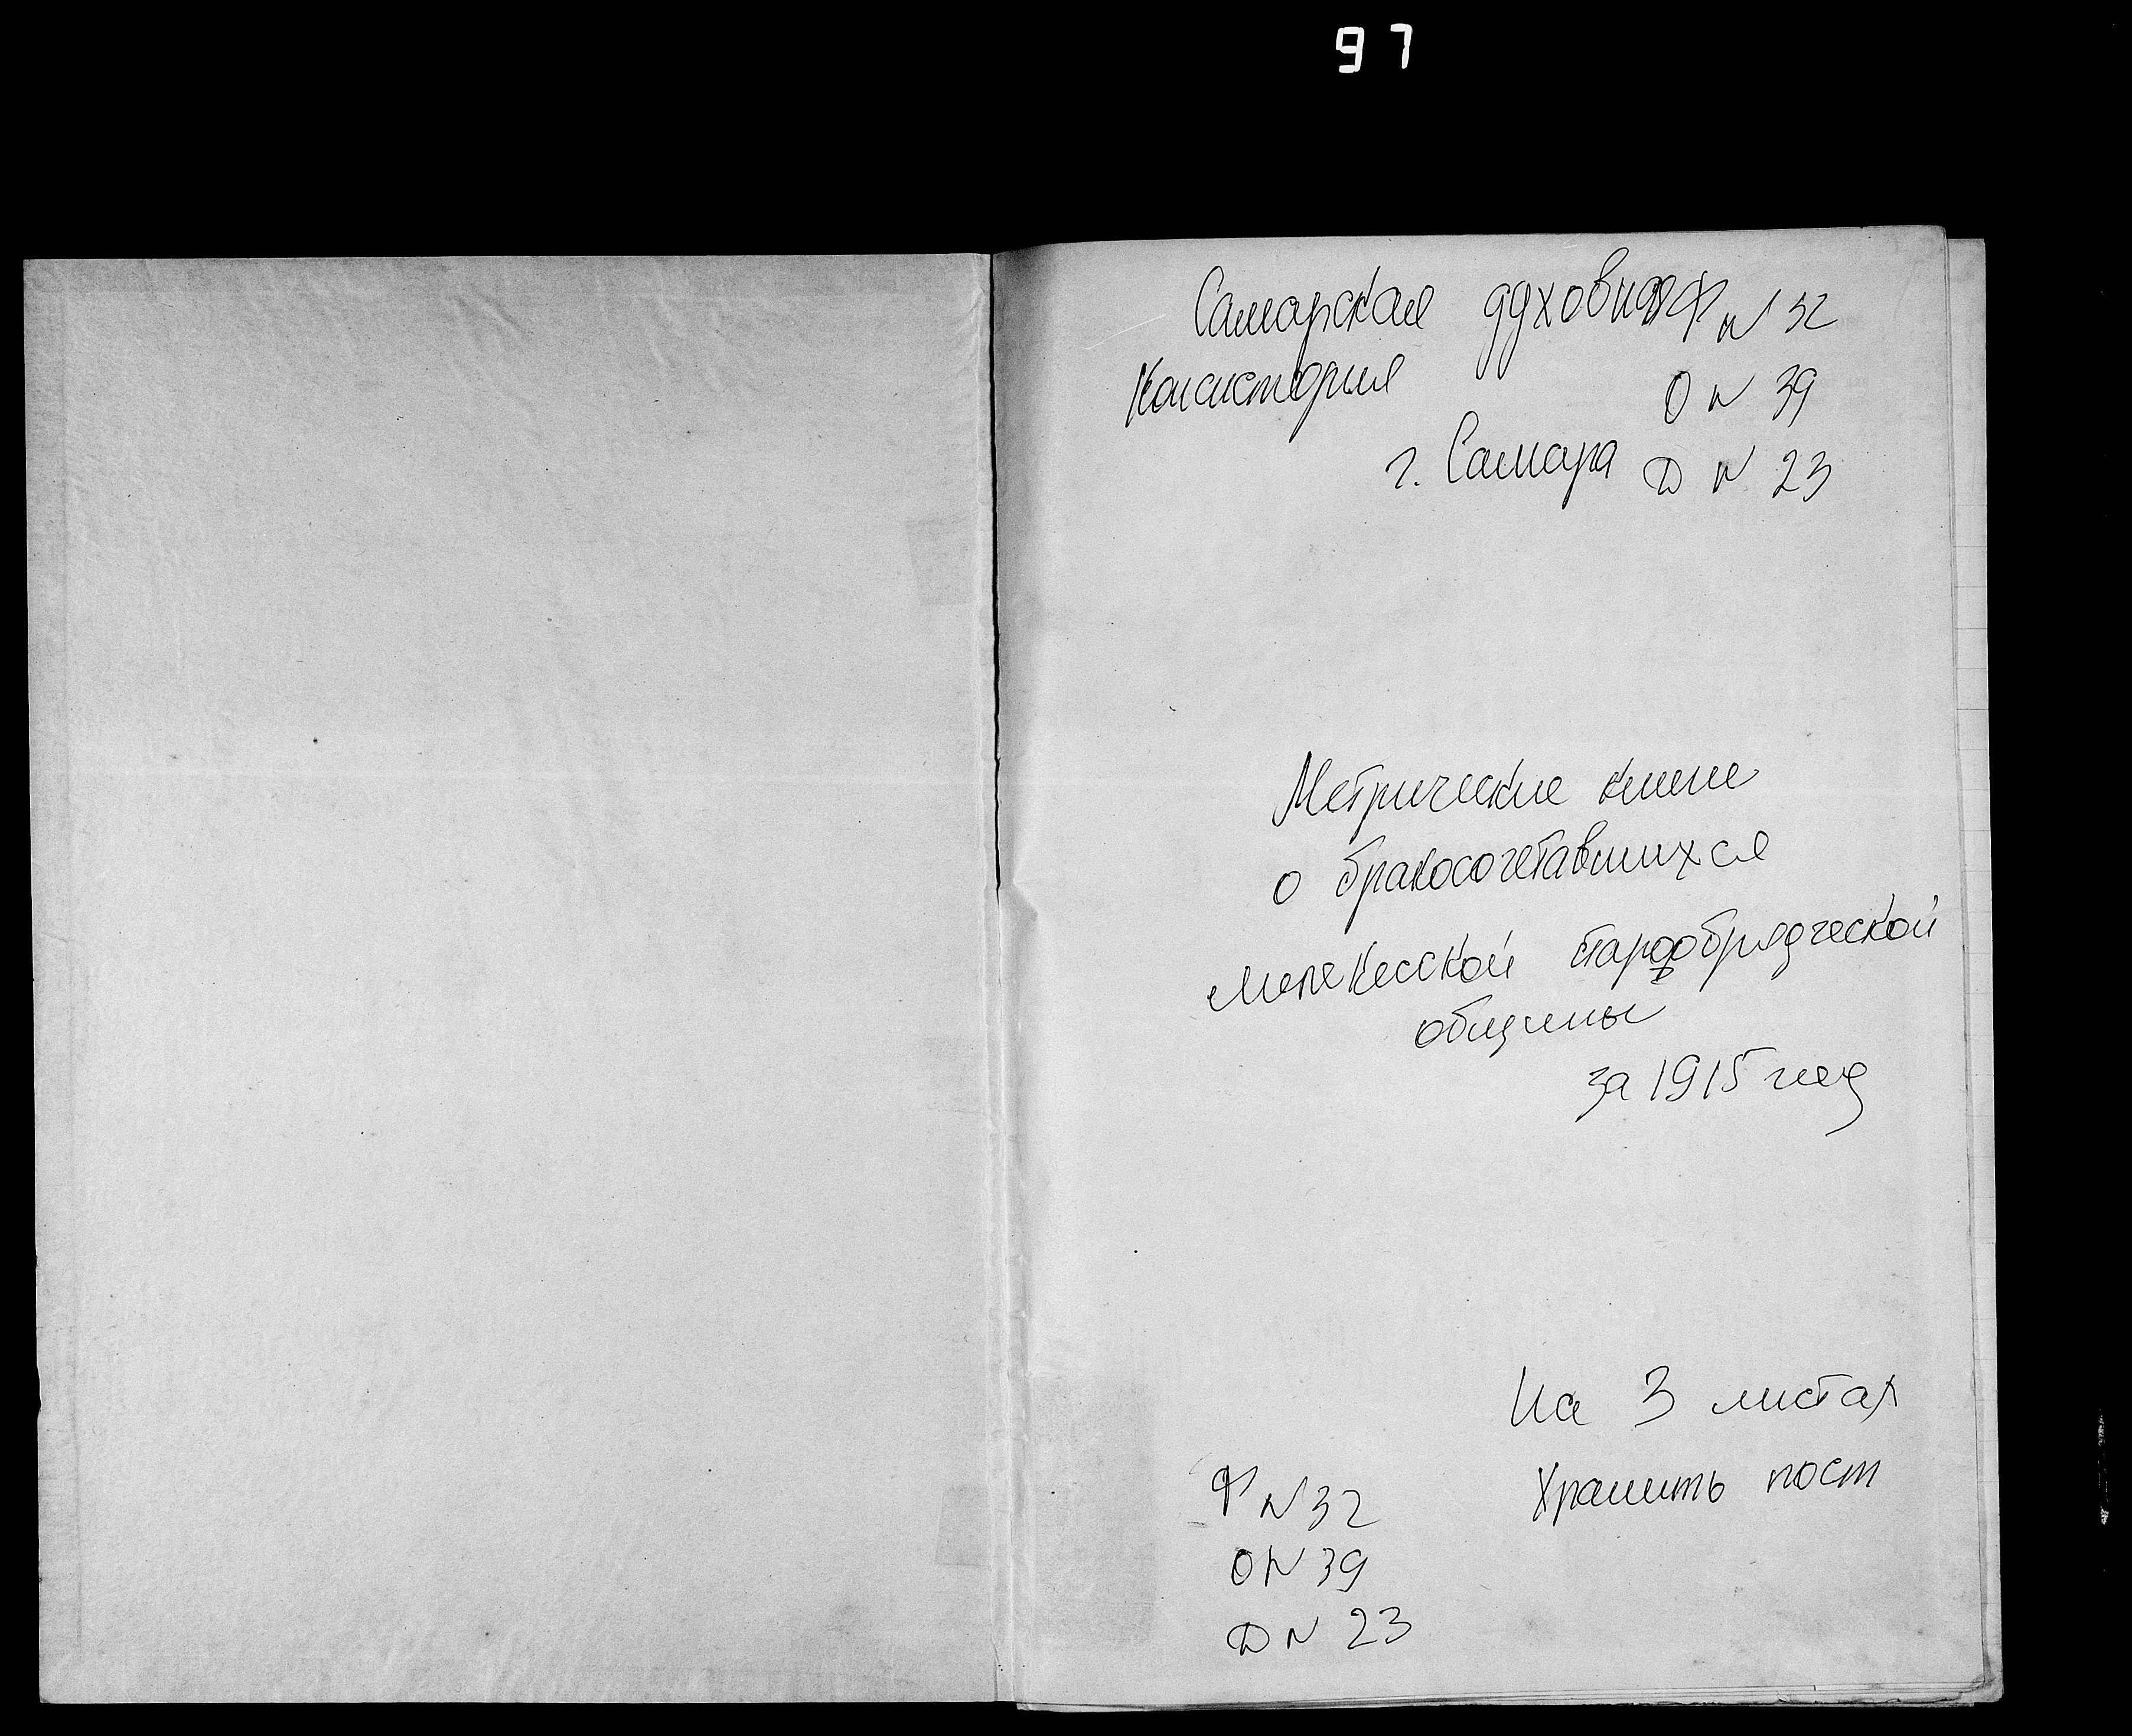 97
Самарская духовная Ф N 32
Консистория О N 39
г. Самара Д N 23
Метрические книги
о бракосочетавшихся
Мелекесской старообрядческой
общины
за 1915 год
На 3 листах
Ф N 32 Хранить пост
О N 39
Д N 23